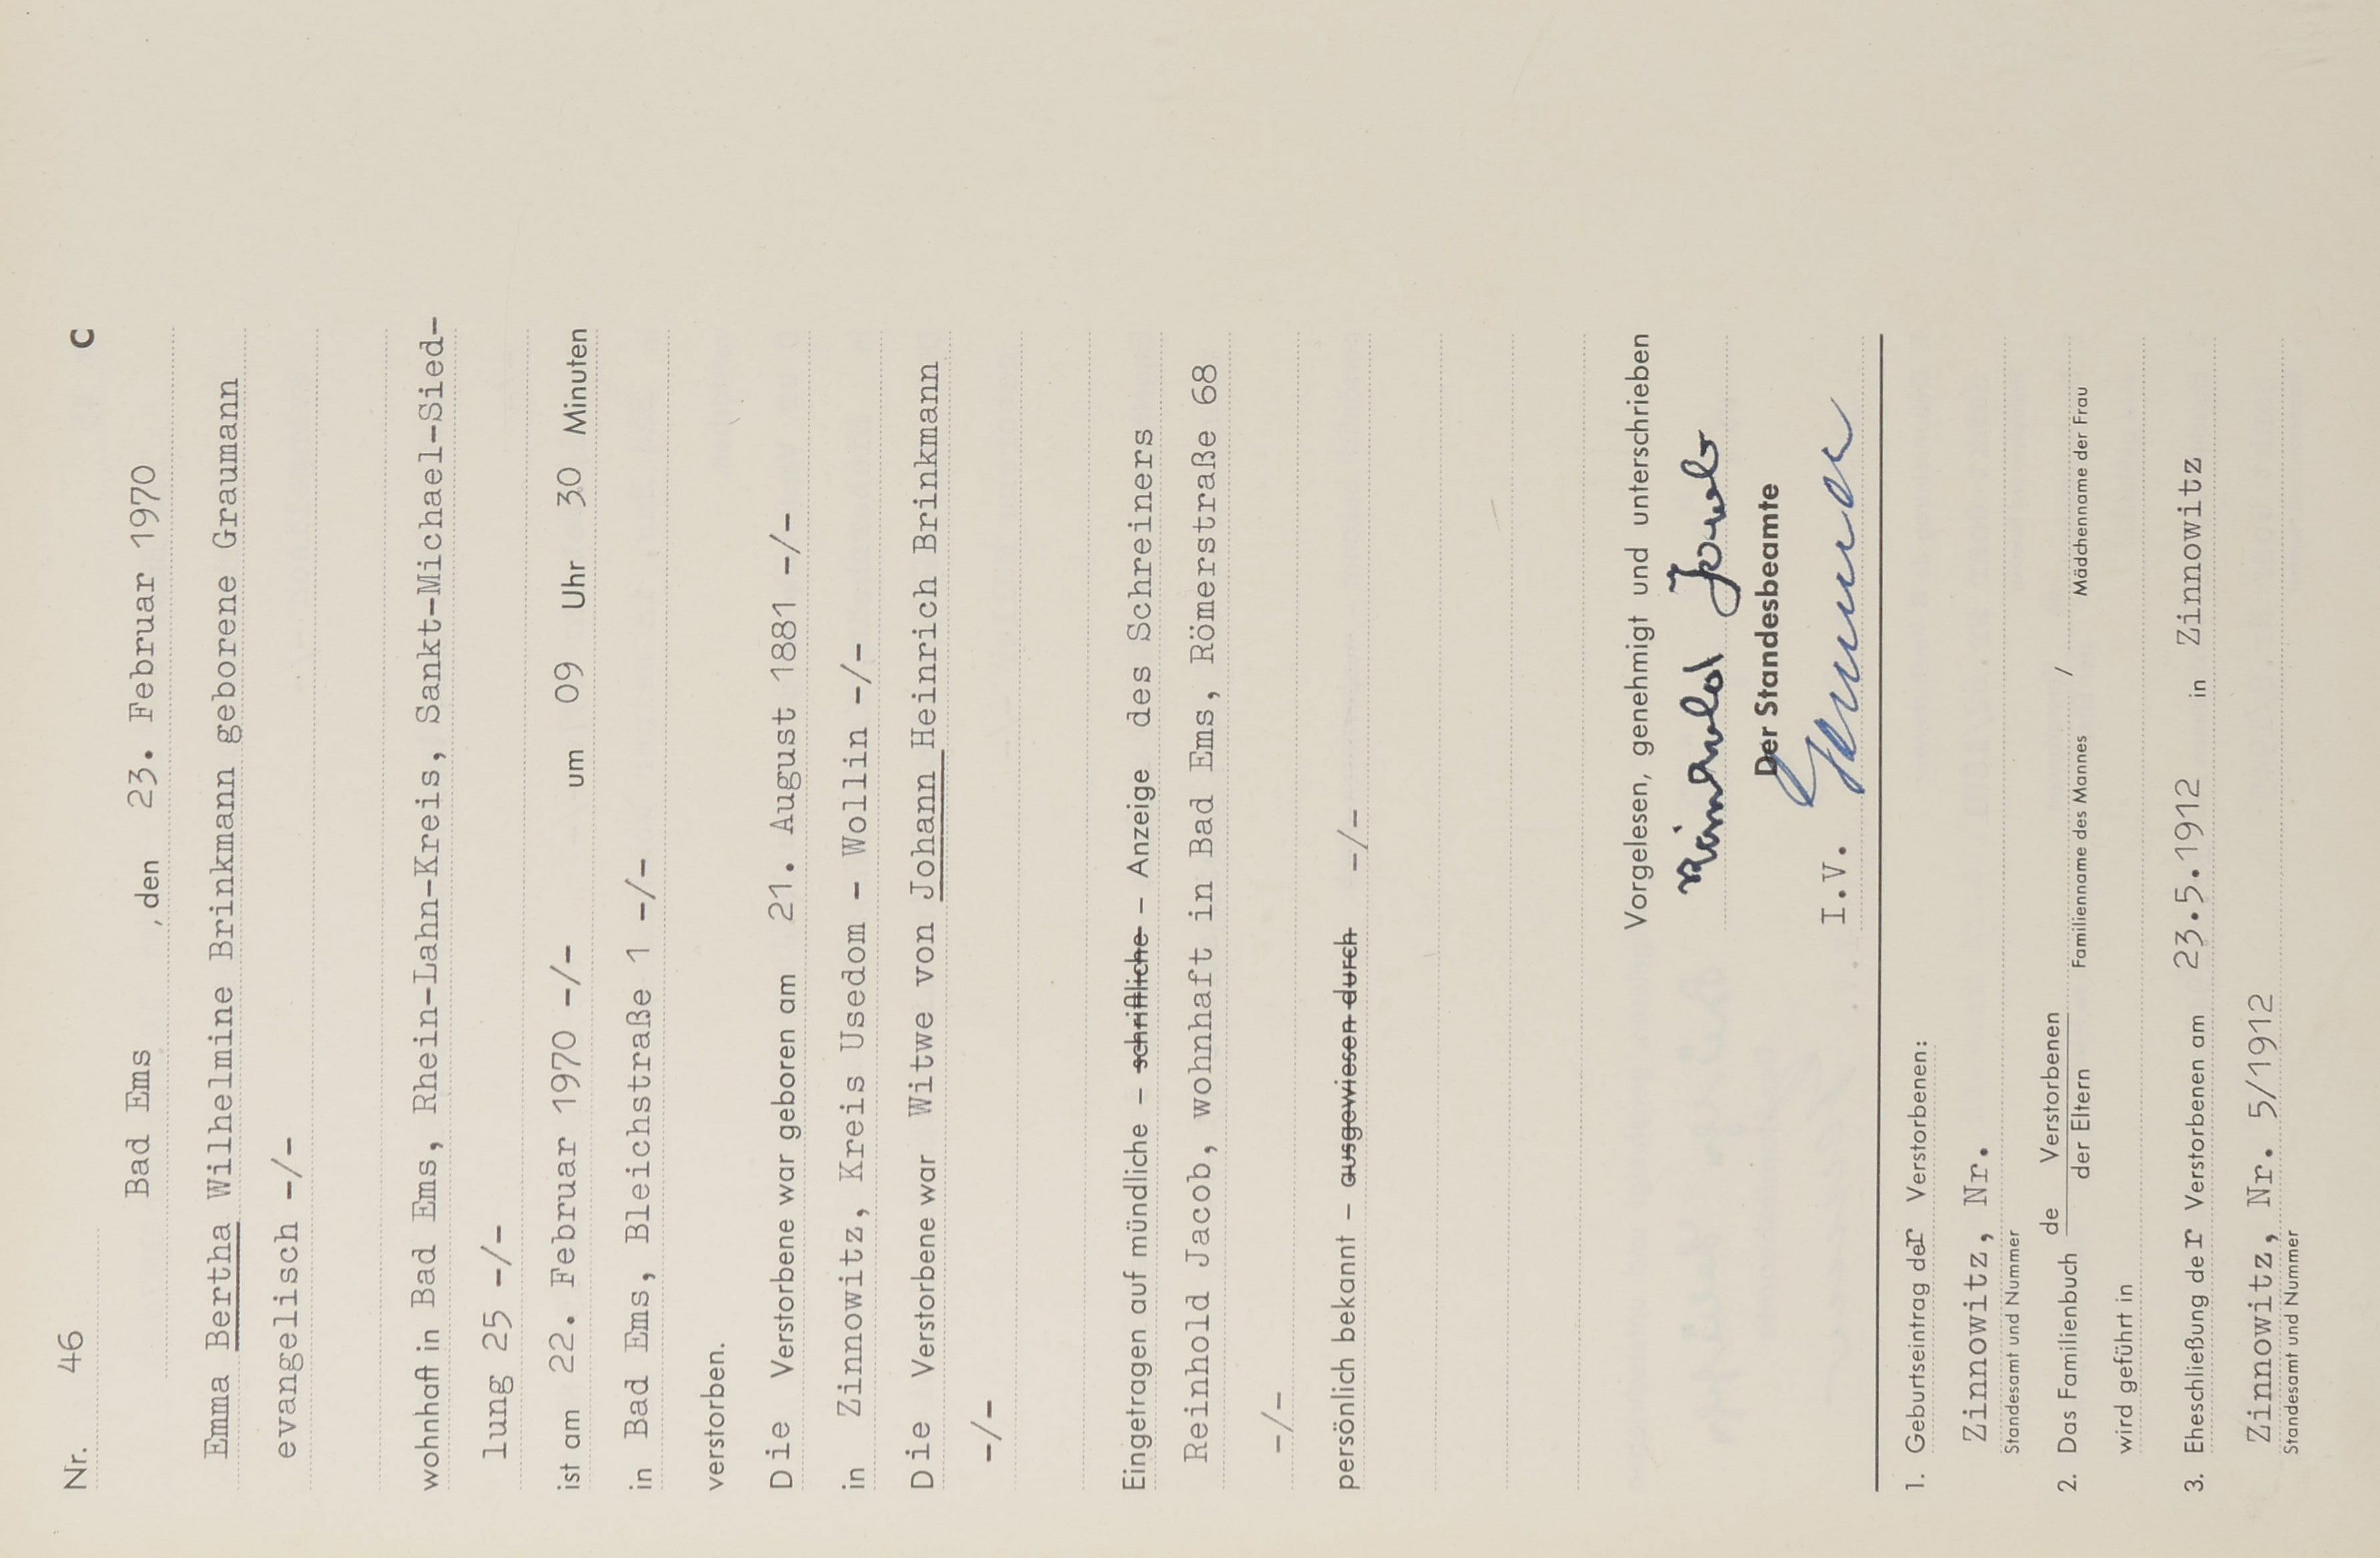 Nr. 46 C
Bad Ems , den 23. Februar 1970
Emma Bertha Wilhelmine Brinkmann geborene Graumann
evangelisch -/-
wohnhaft in Bad Ems, Rhein-Lahn-Kreis, Sankt-Michael-Sied-
lung 25 -/-
ist am 22. Februar 1970 -/- um 09 Uhr 30 Minuten
in Bad Ems, Bleichstraße 1 -/-
verstorben.
Die Verstorbene war geboren am 21. August 1881 -/-
in Zinnowitz, Kreis Usedom - Wollin -/-
Die Verstorbene war Witwe von Johann Heinrich Brinkmann
-/-
Eingetragen auf mündliche – schriftliche – Anzeige des Schreiners
Reinhold Jacob, wohnhaft in Bad Ems, Römerstraße 68
-/-
persönlich bekannt – ausgewiesen durch -/-
Vorgelesen, genehmigt und unterschrieben
Reinhold Jacob
Der Standesbeamte
I.V.
1. Geburtseintrag der Verstorbenen:
Zinnowitz, Nr.
Standesamt und Nummer
2. Das Familienbuch de Verstorbenen /
der Eltern Familienname des Mannes Mädchenname der Frau
wird geführt in
3. Eheschließung der Verstorbenen am 23.5.1912 in Zinnowitz
Zinnowitz, Nr. 5/1912
Standesamt und Nummer